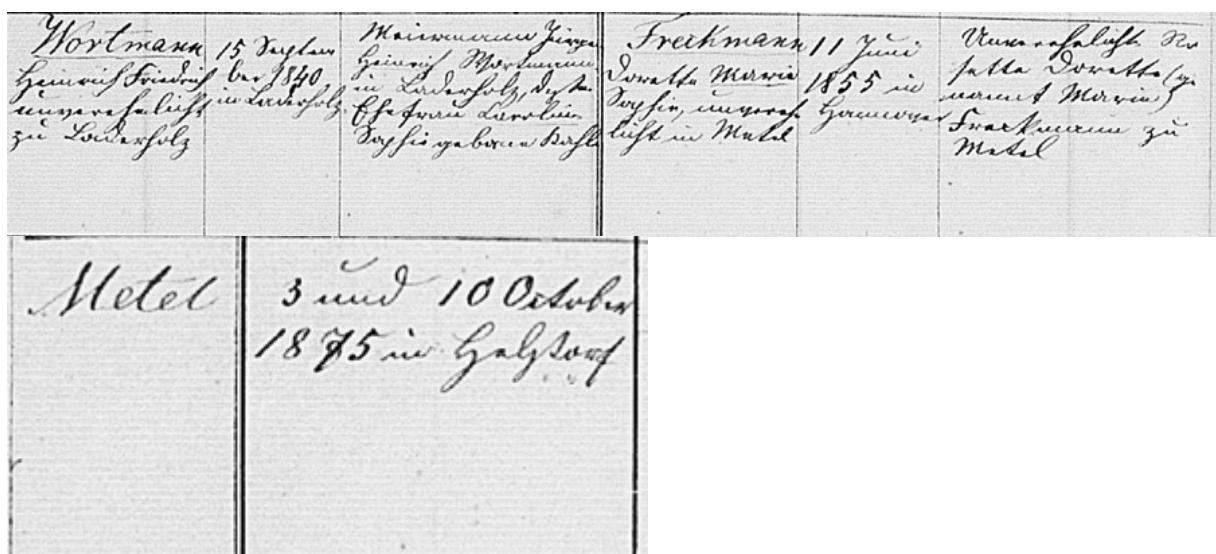 Wortmann
Heinrich Friedrich
unverehelicht
zu Laderholz
15 Septem
ber 1840
in Laderholz
Meiermann Jürgen
Heinrich Wortmann
in Laderholz, dessen
Ehefrau Caroline
Sophie geborne Kahle
Freckmann
Dorette Marie
Sophie, unverehe
licht in Metel
11 Juni
1855 in
Hannover
Unverehelichte Ro
sette Dorette (ge
nannt Marie)
Freckmann zu
Metel
Metel
3 und 10 October
1875 in Helstorf